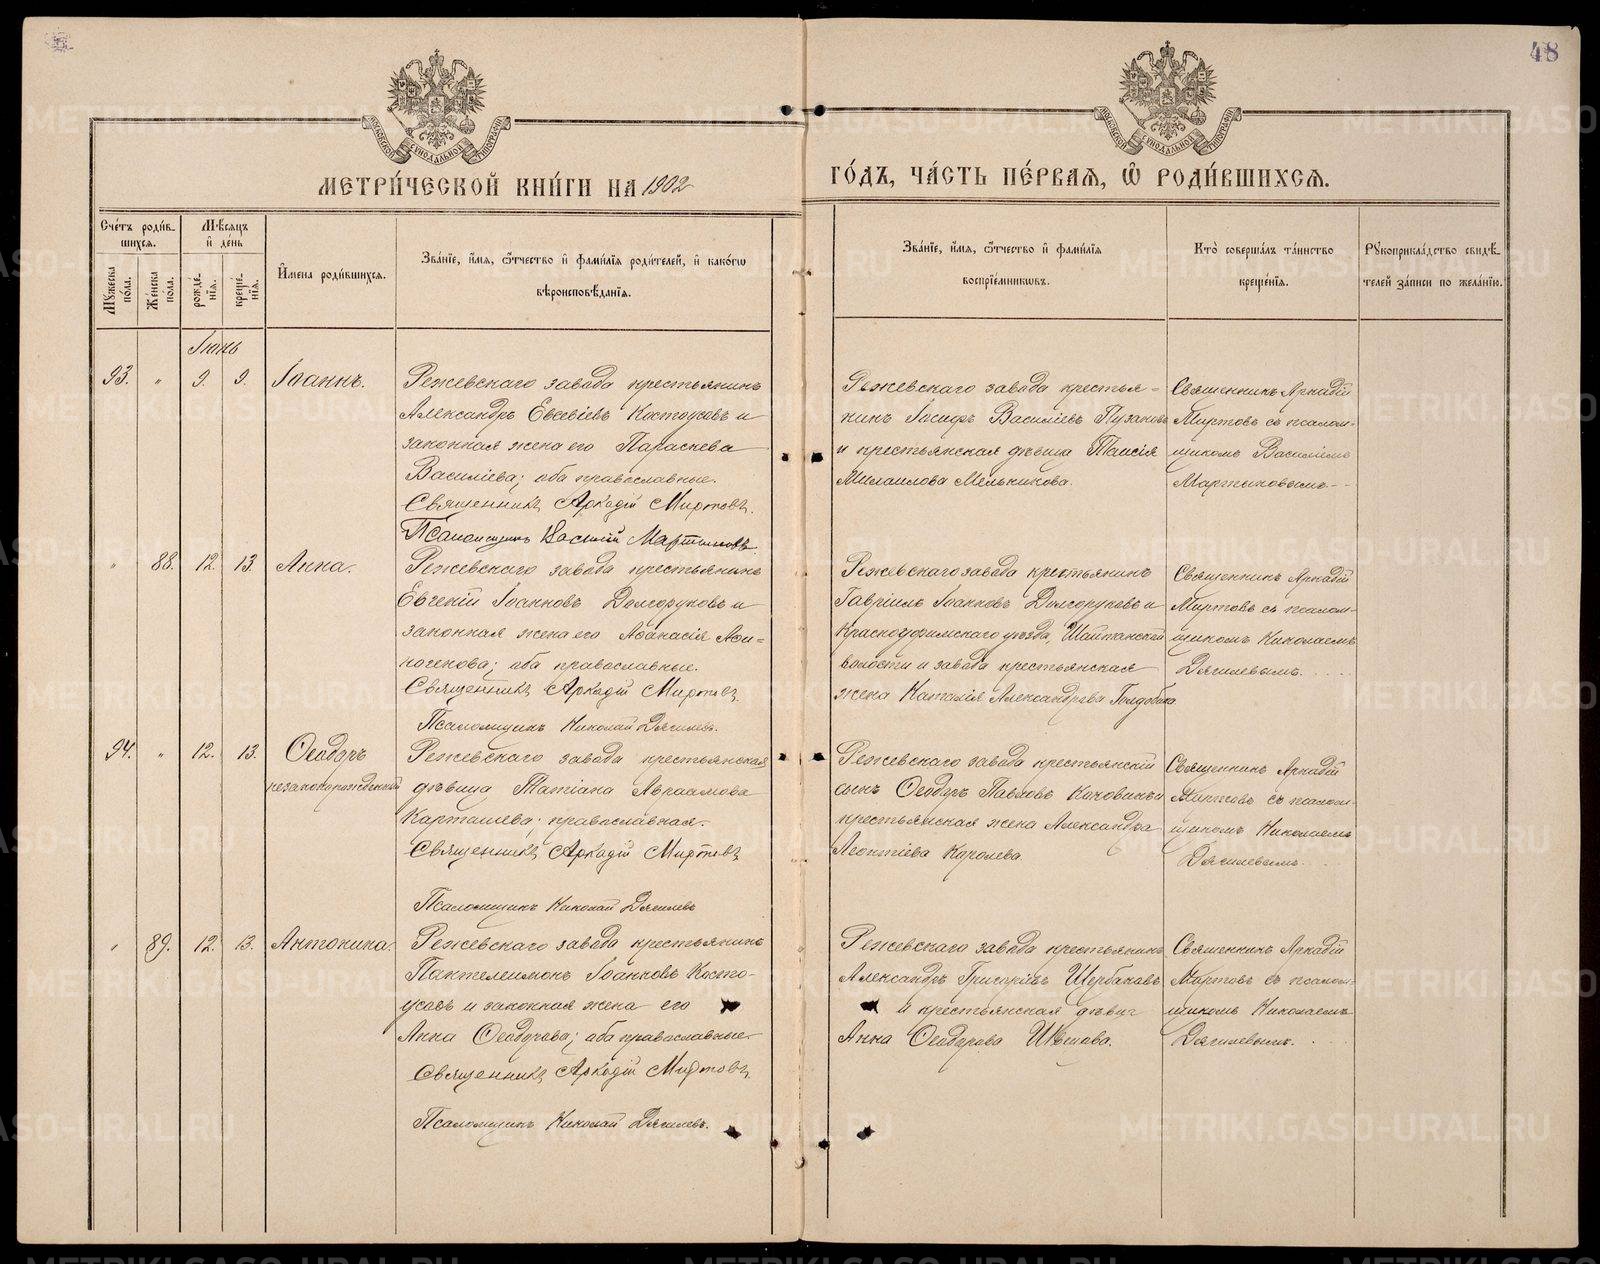 48
МОСКОВСКОЙ СѴНОДАЛЬНОЙ ТИПОГРАФІИ
МОСКОВСКОЙ СѴНОДАЛЬНОЙ ТИПОГРАФІИ
МЕТРИ́ЧЕСКОЙ КНИ́ГИ НА 1902
ГО́ДЪ, ЧА́СТЬ ПЕ́РВАЯ, Ѡ҆ РОДИ́ВШИХСЯ.
Сче́тъ роди́в-
шихся.
Мѣсяцъ
и де́нь
Му́жеска по́ла.
Же́нска по́ла.
рожде́-
нія.
креще́-
нія.
И҆мена роди́вшихся.
Зва́ніе, и҆́мя, ѻ҆́тчество и҆ фами́лія роди́телей, и҆ како́гѡ
вѣроисповѣ́данія.
Зва́ніе, и҆́мя, ѻ҆́тчество и҆ фами́лія
воспріе́мникѡвъ.
Кто̀ соверша́лъ та́инство
креще́нія.
Рукоприкла́дство свидѣ́-
телей за́писи по жела́нію.
Іюнь
93. " 9. 9. Іоаннъ.
Режевскаго завода крестьянинъ
Александръ Евсевіевъ Костоусовъ и
законная жена его Параскева
Василіева; оба православные.
Священникъ Аркадій Миртовъ.
Псаломщикъ Василій Мартыновъ
Режевскаго завода крестья-
нинъ Іосифъ Василіевъ Пузановъ
и крестьянская дѣвица Таисія
Михаилова Мельникова.
Священникъ Аркадій
Миртовъ съ псалом-
щикомъ Василіемъ
Мартыновымъ.
" 88. 12. 13. Анна.
Режевскаго завода крестьянинъ
Евгеній Іоанновъ Долгоруковъ и
законная жена его Аѳанасія Аѳи-
ногенова; оба православные.
Священникъ Аркадій Миртовъ
Псаломщикъ Николай Дягилевъ.
Режевскаго завода крестьянинъ
Гавріилъ Іоанновъ Долгоруковъ и
Красноуфимскаго уѣзда, Шайтанской
волости и завода крестьянская
жена Наталія Александрова Голдобина
Священникъ Аркадій
Миртовъ съ псалом-
щикомъ Николаемъ
Дягилевымъ.
94. " 12. 13. Ѳеодоръ
незаконнорожденный
Режевскаго завода крестьянская
дѣвица Татіана Авраамова
Карташева; православная.
Священникъ Аркадій Миртовъ
Псаломщикъ Николай Дягилевъ
Режевскаго завода крестьянскій
сынъ Ѳеодоръ Павловъ и
крестьянская жена Александра
Леонтіева Королева.
Священникъ Аркадій
Миртовъ съ псалом-
щикомъ Николаемъ
Дягилевымъ.
" 89. 12. 13. Антонина.
Режевскаго завода крестьянинъ
Пантелеимонъ Іоанновъ Косто-
усовъ и законная жена его
Анна Ѳеодорова; оба православные.
Священникъ Аркадій Миртовъ
Псаломщикъ Николай Дягилевъ.
Режевскаго завода крестьянинъ
Александръ Григоріевъ Щербаковъ
и крестьянская дѣвица
Анна Ѳеодорова
Священникъ Аркадій
Миртовъ съ псалом-
щикомъ Николаемъ
Дягилевымъ.
METRIKI.GASO-URAL.RU